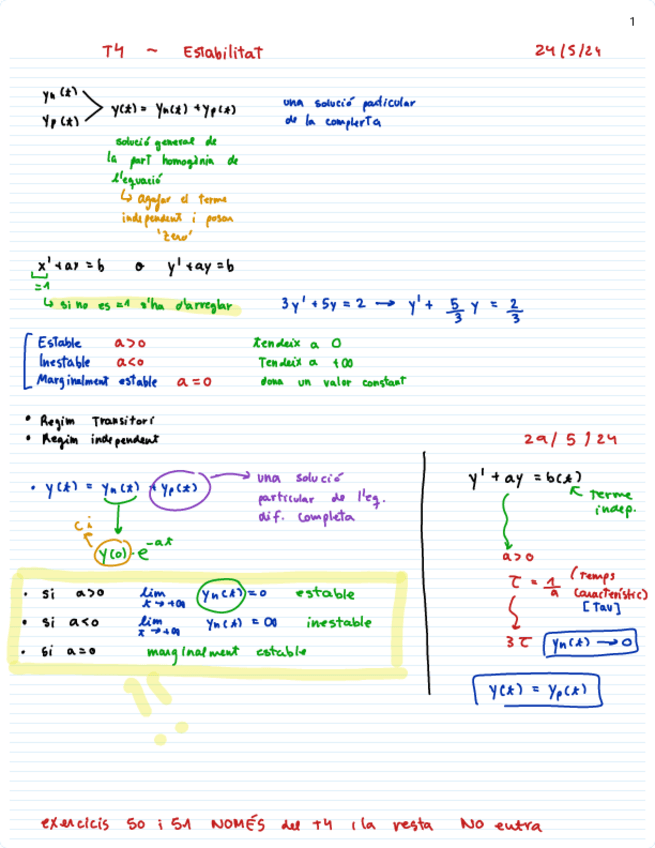 1
T4 ~ Estabilitat
24/5/24
yn(t)
yp(t)
y(t) = yn(t) + yp(t)
una solució particular
de la complerta
solució general de
la part homogènia de
l'equació
↳ agafar el terme
independent i posar
'zero'
x' + ax = b o y' + ay = b
=1
↳ si no es =1 s'ha d'arreglar
3y' + 5y = 2 → y' + 5/3 y = 2/3
Estable a>0 tendeix a 0
Inestable a<0 Tendeix a +∞
Marginalment estable a=0 dona un valor constant
• Regim Transitori
• Regim independent
• y(t) = yn(t) + yp(t)
una solució
particular de l'eq.
dif. completa
ci
y(0)·e^-at
• si a>0 lim t→+∞ yn(t)=0 estable
• si a<0 lim t→+∞ yn(t) = ∞ inestable
• si a=0 marginalment estable
!!
29/5/24
y' + ay = b(t)
terme
indep.
a>0
τ = 1/a (Temps
característic)
[Tau]
3τ yn(t) → 0
y(t) = yp(t)
exercicis 50 i 51 NOMÉS del T4 i la resta NO entra